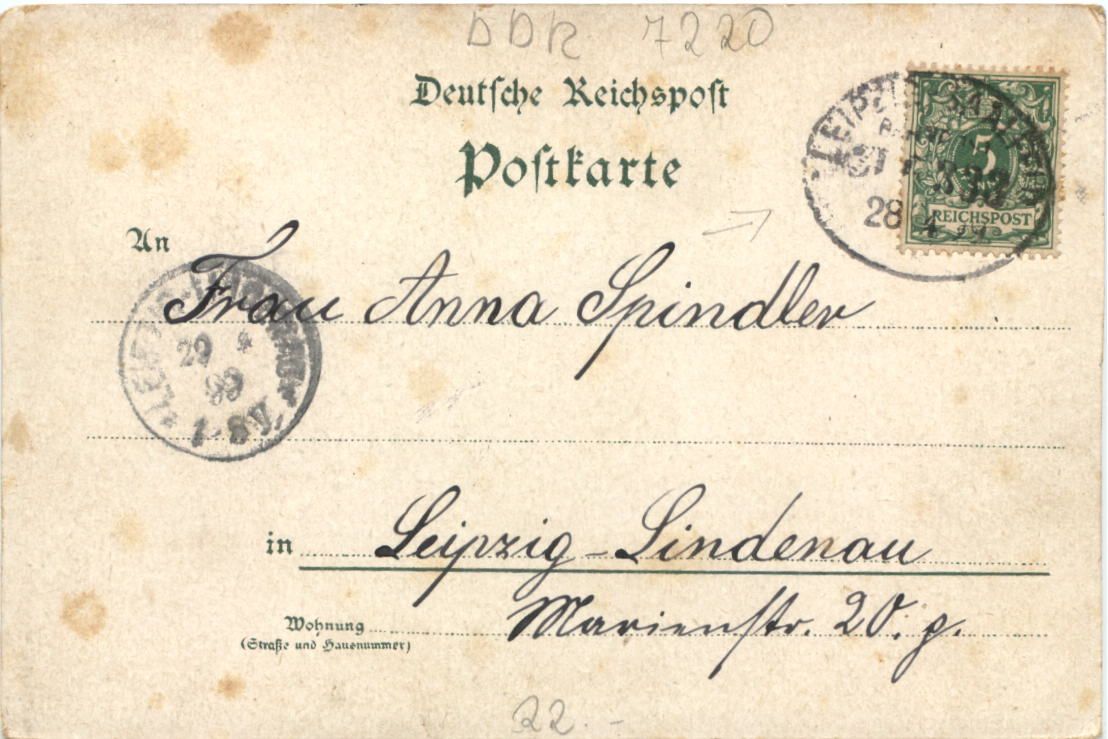 DDR 7220
Deutsche Reichspost
Postkarte
5
REICHSPOST
28 4 99
An
Frau Anna Spindler
29 4
99
1-8V.
in Leipzig-Lindenau
Wohnung
(Straße und Hausnummer)
Marienstr. 20. p.
22.-